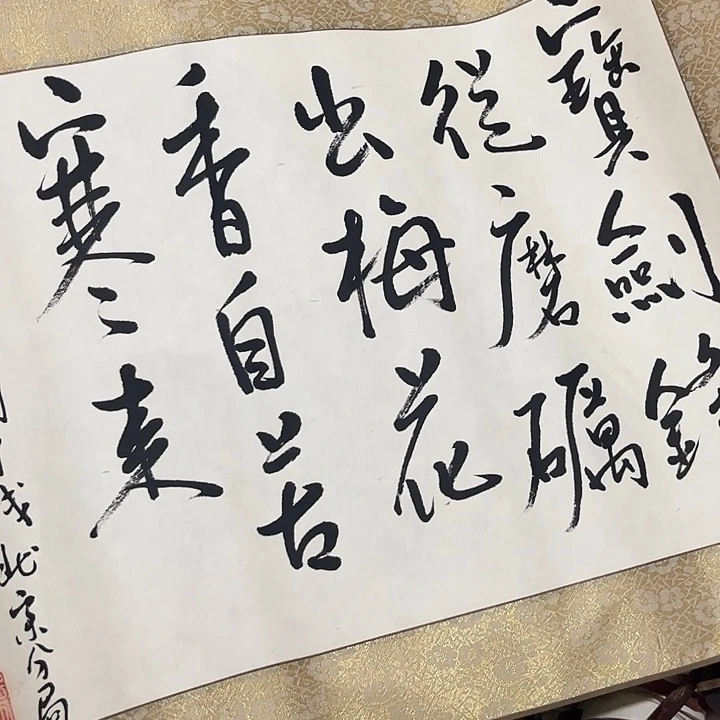 寶劍鋒
從磨礪
出梅花
香自苦
寒來
北京分局